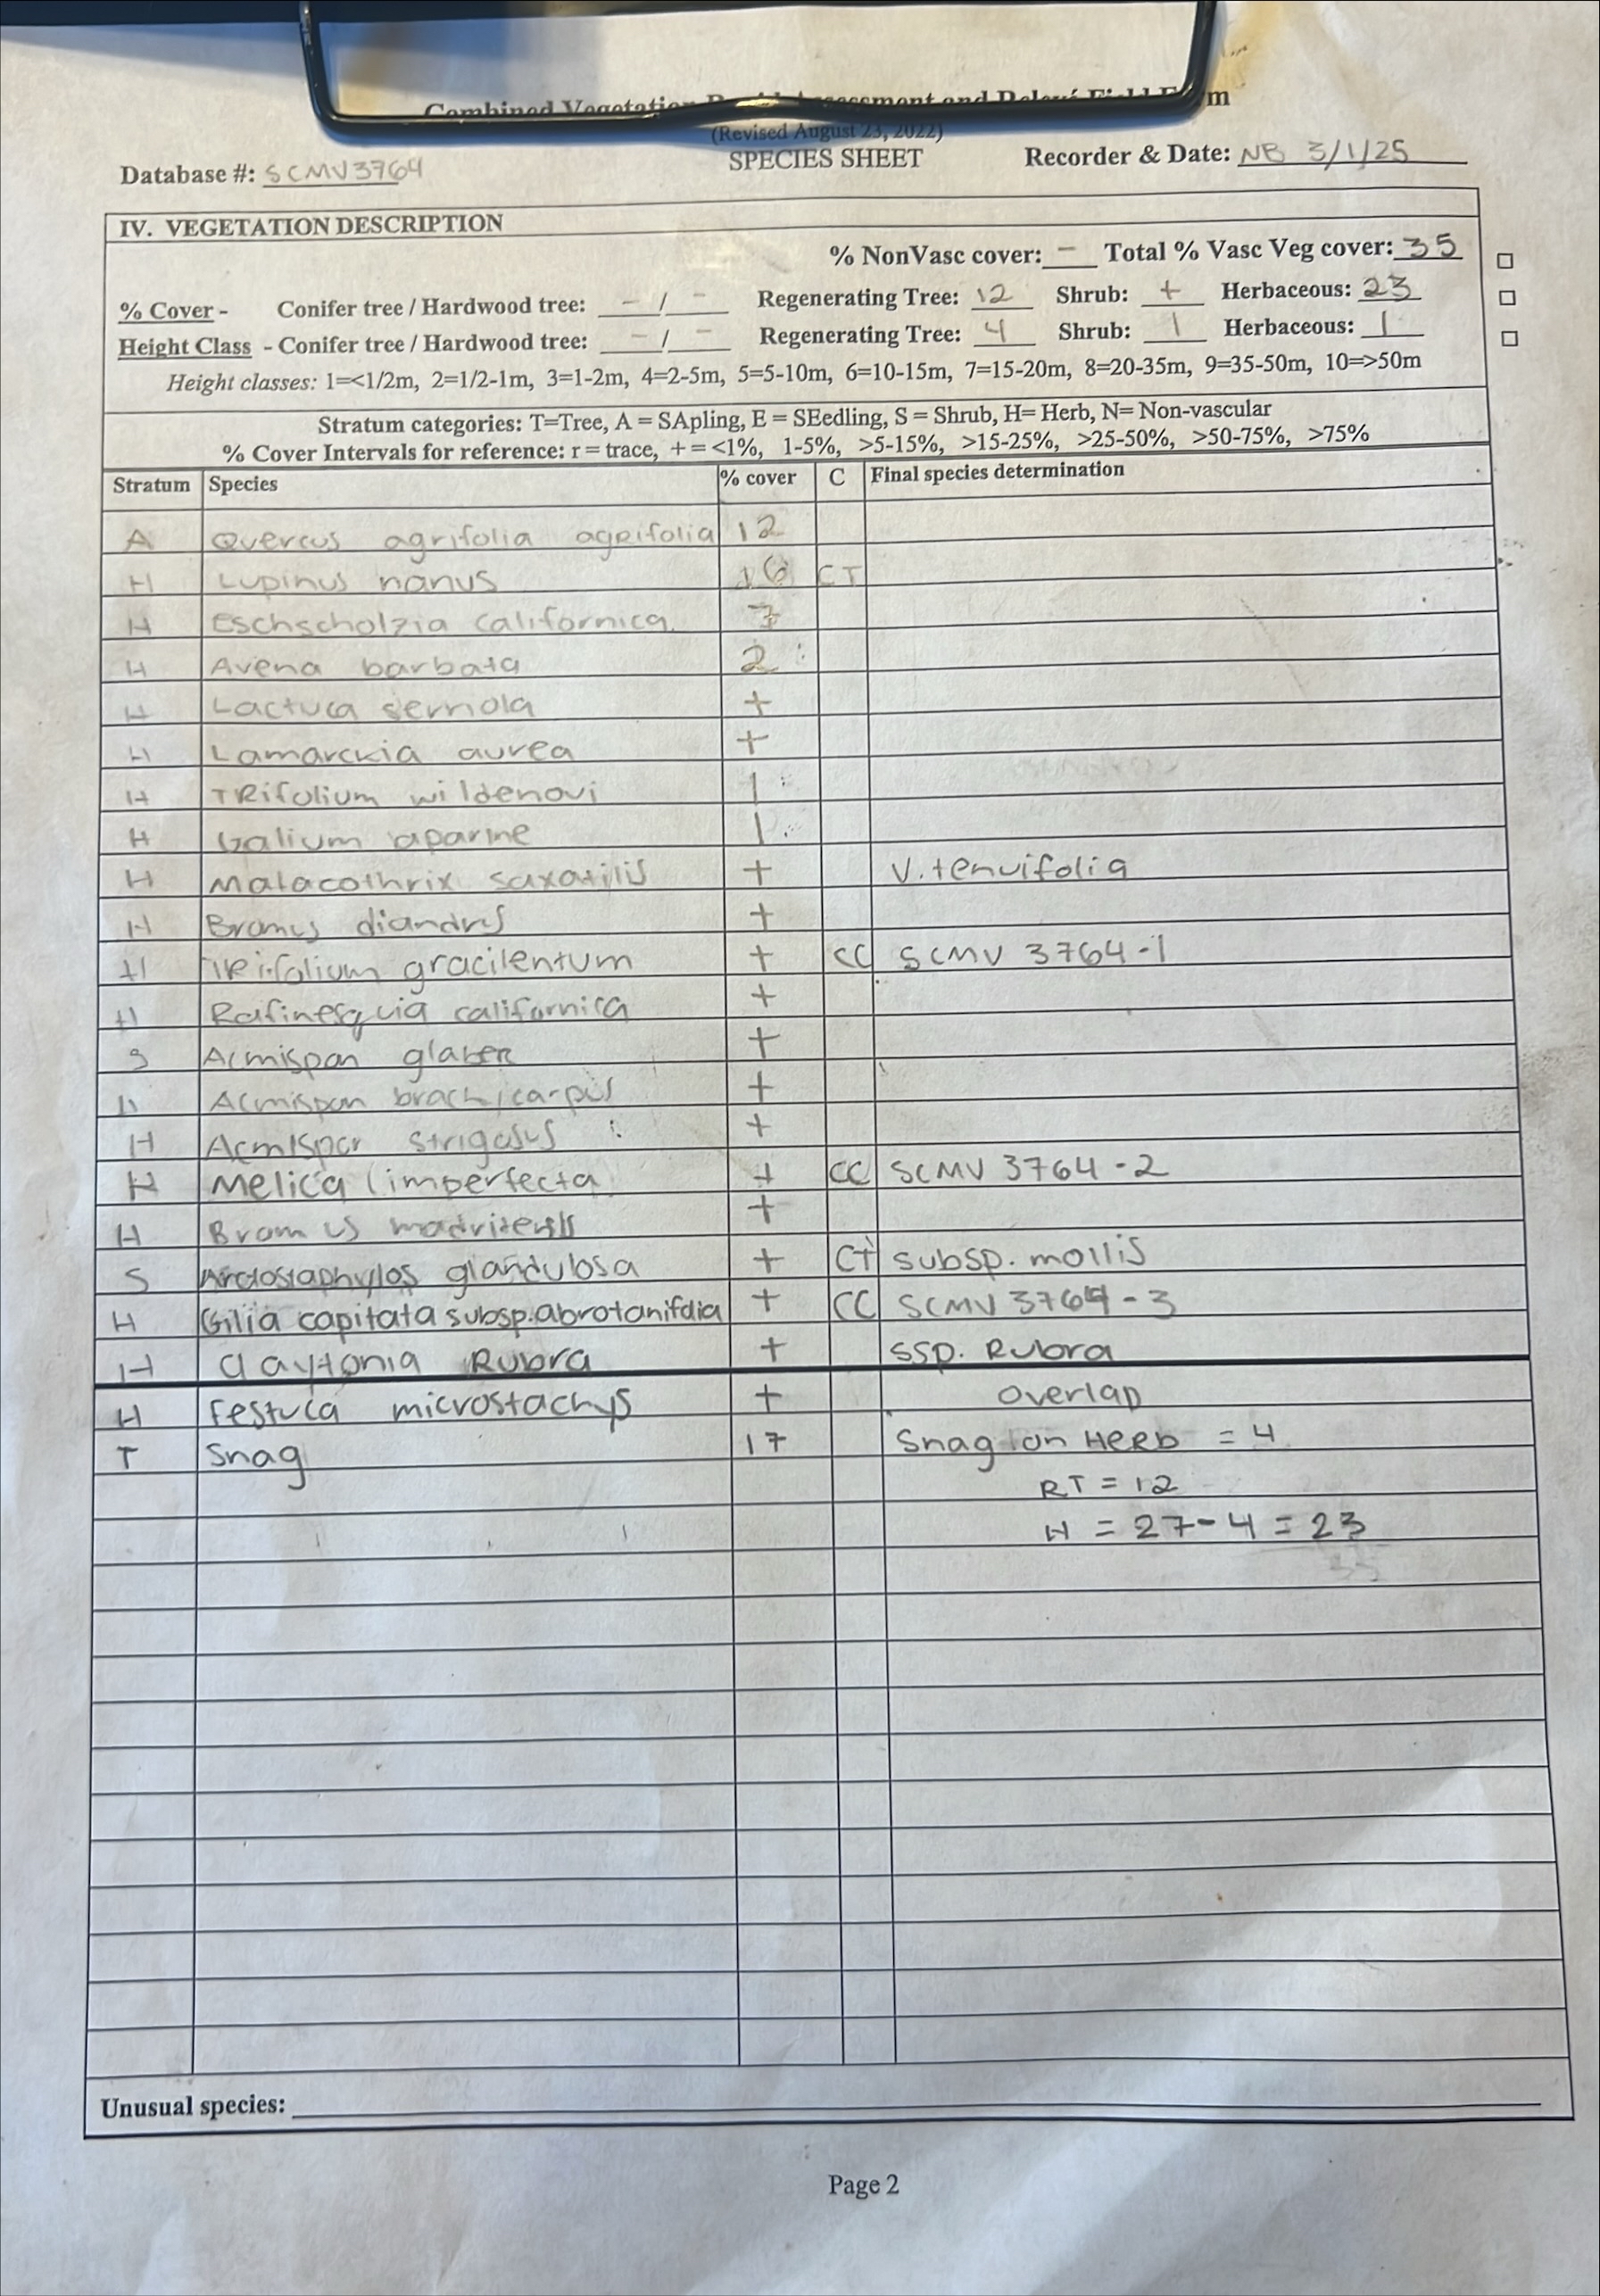 Combined Vegetation Rapid Assessment and Relevé Field Form
(Revised August 23, 2022)
SPECIES SHEET
Database #: SCMV3764
Recorder & Date: NB 3/1/25
IV. VEGETATION DESCRIPTION
% NonVasc cover: - Total % Vasc Veg cover: 35
% Cover - Conifer tree / Hardwood tree: - / - Regenerating Tree: 12 Shrub: + Herbaceous: 23
Height Class - Conifer tree / Hardwood tree: - / - Regenerating Tree: 4 Shrub: 1 Herbaceous: 1
Height classes: 1=<1/2m, 2=1/2-1m, 3=1-2m, 4=2-5m, 5=5-10m, 6=10-15m, 7=15-20m, 8=20-35m, 9=35-50m, 10=>50m
Stratum categories: T=Tree, A = SApling, E = SEedling, S = Shrub, H= Herb, N= Non-vascular
% Cover Intervals for reference: r = trace, + = <1%, 1-5%, >5-15%, >15-25%, >25-50%, >50-75%, >75%
Stratum Species % cover C Final species determination
A Quercus agrifolia agrifolia 12
H Lupinus nanus 16 CT
H Eschscholzia californica 7
H Avena barbata 2
H Lactuca serriola +
H Lamarckia aurea +
H TRifolium wildenovi 1
H Galium aparine 1
H Malacothrix saxatilis + V. tenuifolia
H Bromus diandrus +
H TRifolium gracilentum + CC SCMV 3764-1
H Rafinesquia californica +
S Acmispon glaber +
H Acmispon brachycarpus +
H Acmispor strigosus +
H Melica imperfecta + CC SCMV 3764-2
H Bromus madritensis +
S Arctostaphylos glandulosa + CT subsp. mollis
H Gilia capitata subsp. abrotanifolia + CC SCMV 3764-3
H Claytonia Rubra + SSP. Rubra
H Festuca microstachys + overlap
T Snag 17 Snag on Herb = 4
RT = 12
H = 27-4 = 23
Unusual species:
Page 2